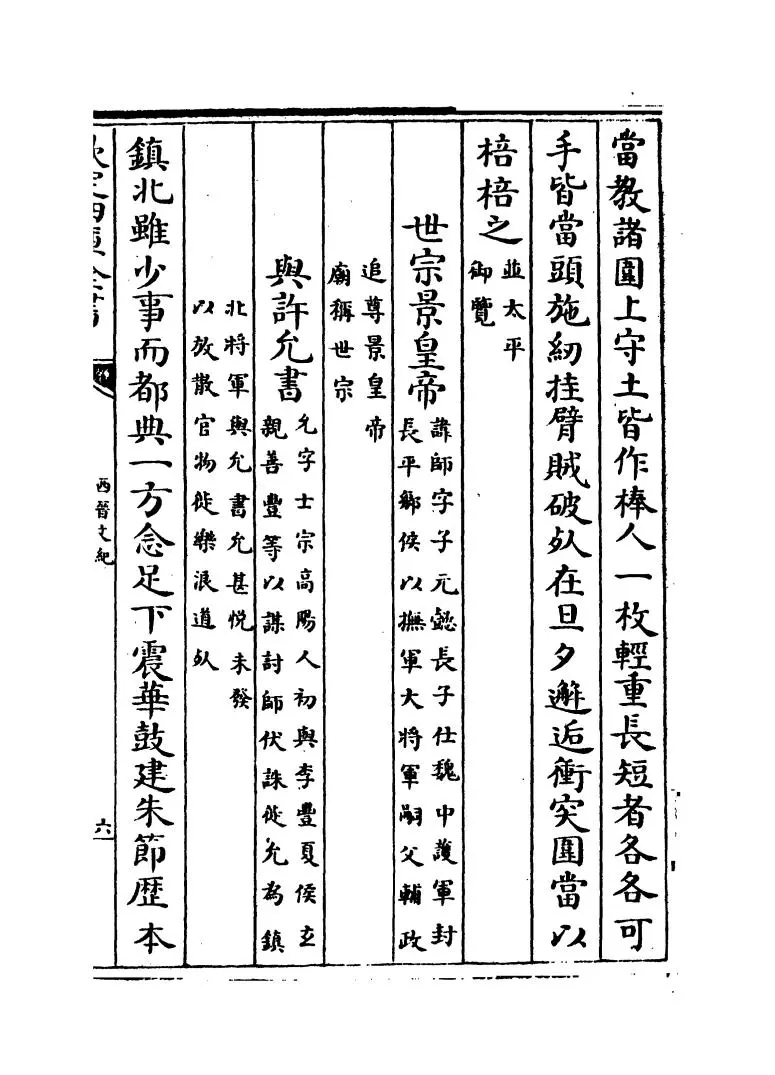 當教諸圍上守土皆作棒人一枚輕重長短者各各可
手皆當頭施紉挂臂賊破𠨘在旦夕邂逅衝突圍當以
棓棓之
並太平
御覽
世宗景皇帝
諱師字子元懿長子仕魏中護軍封
長平鄉侯以撫軍大將軍嗣父輔政
追尊景皇帝
廟稱世宗
與許允書
允字士宗高陽人初與李豐夏侯玄
親善豐等以謀討師伏誅徙允為鎮
北將軍與允書允甚悅未發
以放散官物徙樂浪道死
鎮北雖少事而都典一方念足下震華鼓建朱節歷本
欽定四庫全書
西晉文紀
六